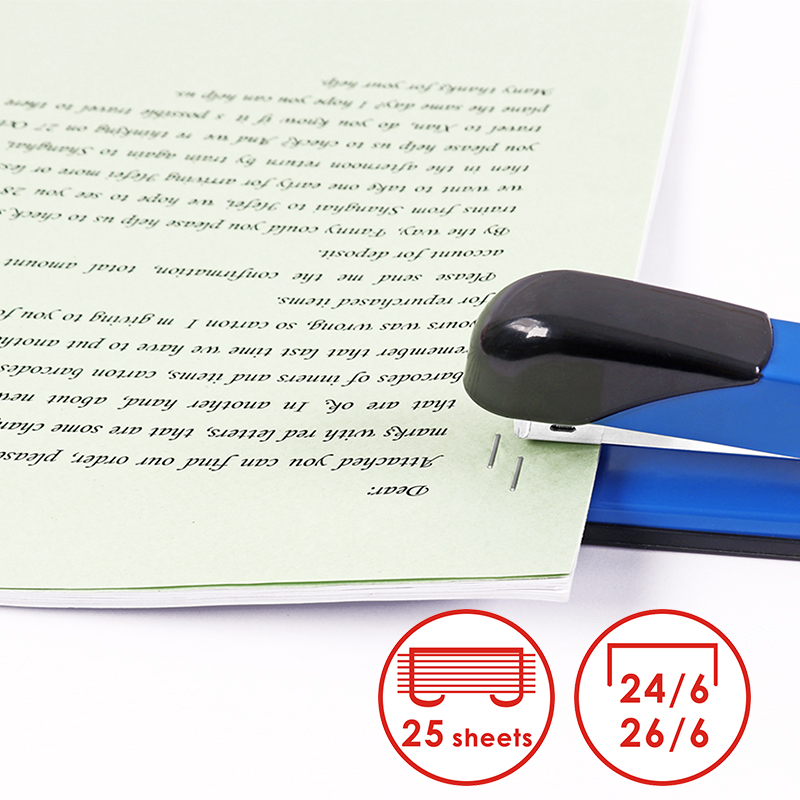 Dear:
Attached you can find our order, please
marks with red letters, that are some chan
that are ok. In another hand, about new
barcodes of inners and items, carton barcodes
remember that last time we have to put another
yours was wrong, so carton I m giving to you fo
for repurchased items.
Please send me the confirmation, total amount
account for deposit.
By the way, Fanny, could you please help us to check s
trains from Shanghai to Hefei, we hope to see you 28
we want to take one early for arriving Hefei more or less
then in the afternoon return by train again to Shanghai.
you please help us to check? And we re thinking on 27 Oct
travel to Xian, do you know if it s possible travel to there
plane the same day? I hope you can help us.
Many thanks for your help.
25 sheets
24/6
26/6